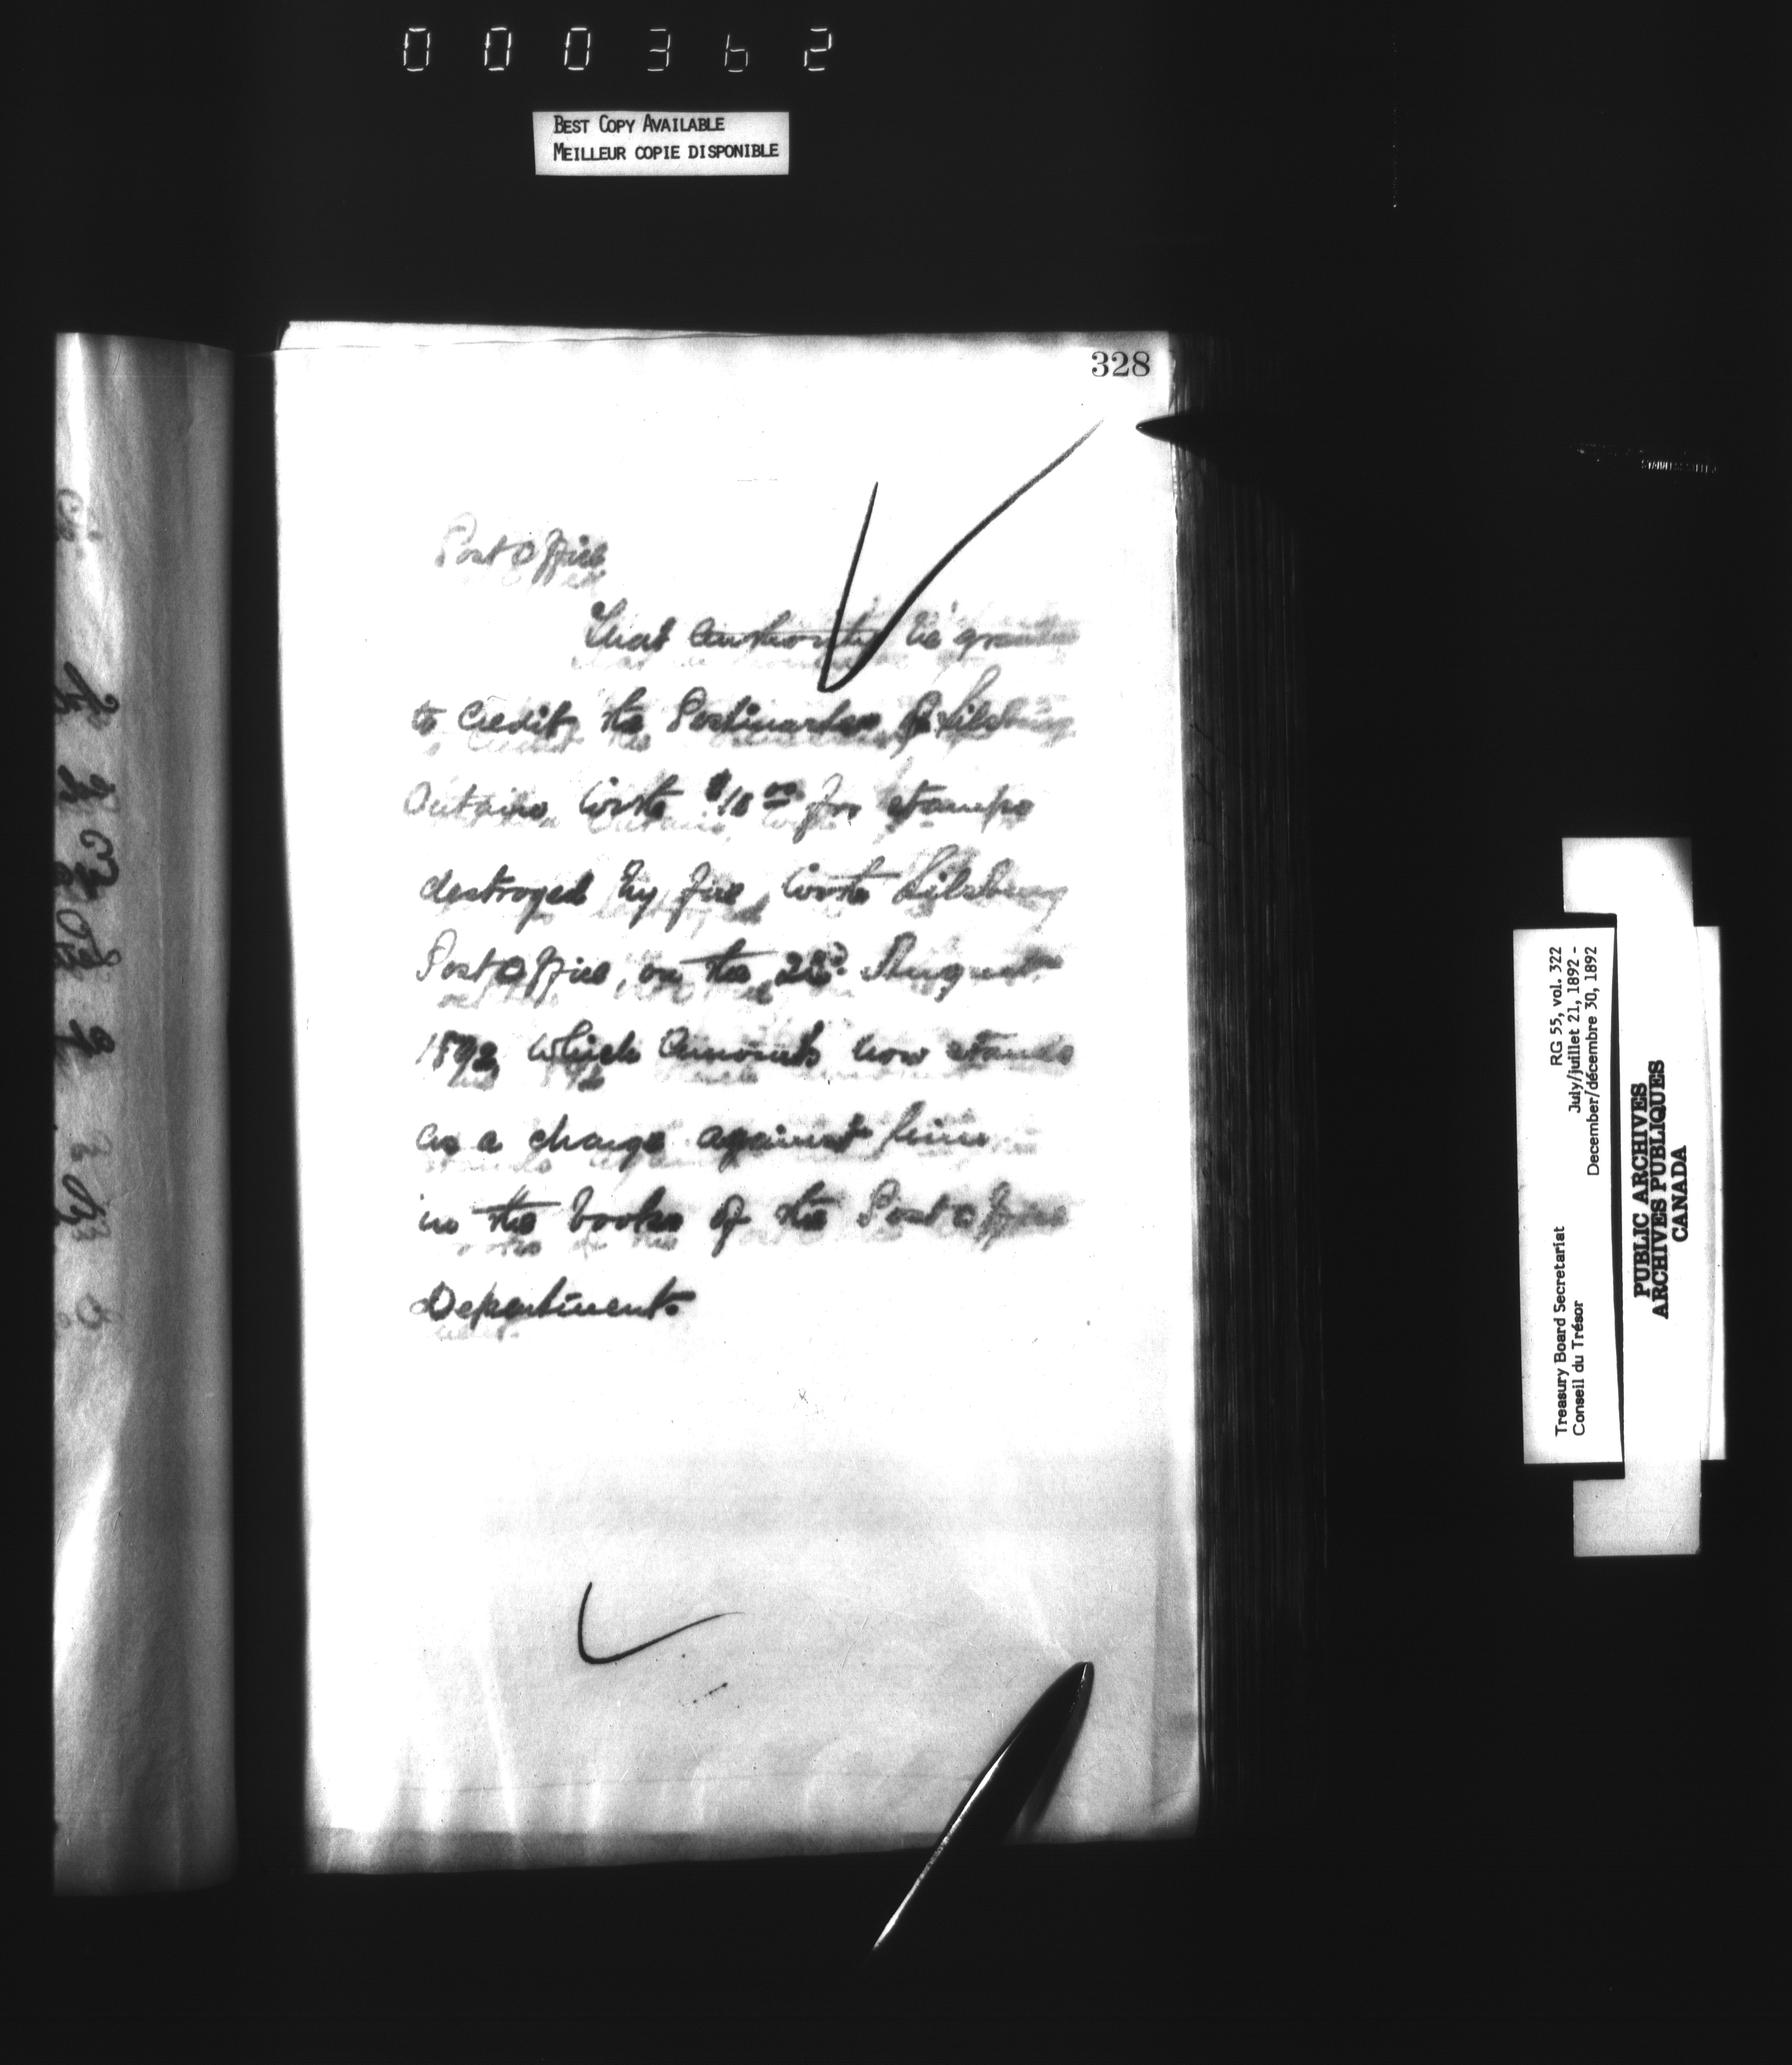 000362
BEST COPY AVAILABLE
MEILLEUR COPIE DISPONIBLE
328
Post Office
That authority be granted
to Credit the Postmaster of Tilsbury
Ontario with $10.00 for stamps
destroyed by fire, with Tilsbury
Post Office, on the 22d. August
1892, which Amount now stands
as a charge against him
in the books of the Post Office
Department.
Treasury Board Secretariat RG 55, vol. 322
Conseil du Trésor July/juillet 21, 1892 -
December/décembre 30, 1892
PUBLIC ARCHIVES
ARCHIVES PUBLIQUES
CANADA